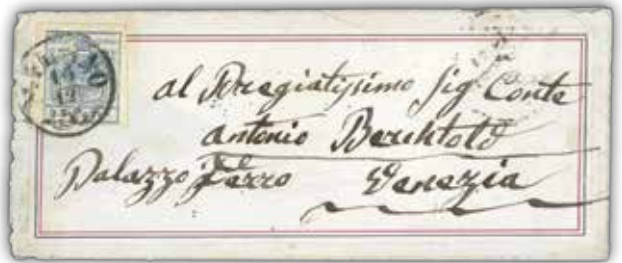 al Pregiatissimo Sig. Conte
Antonio Berchtold
Palazzo Ferro Venezia